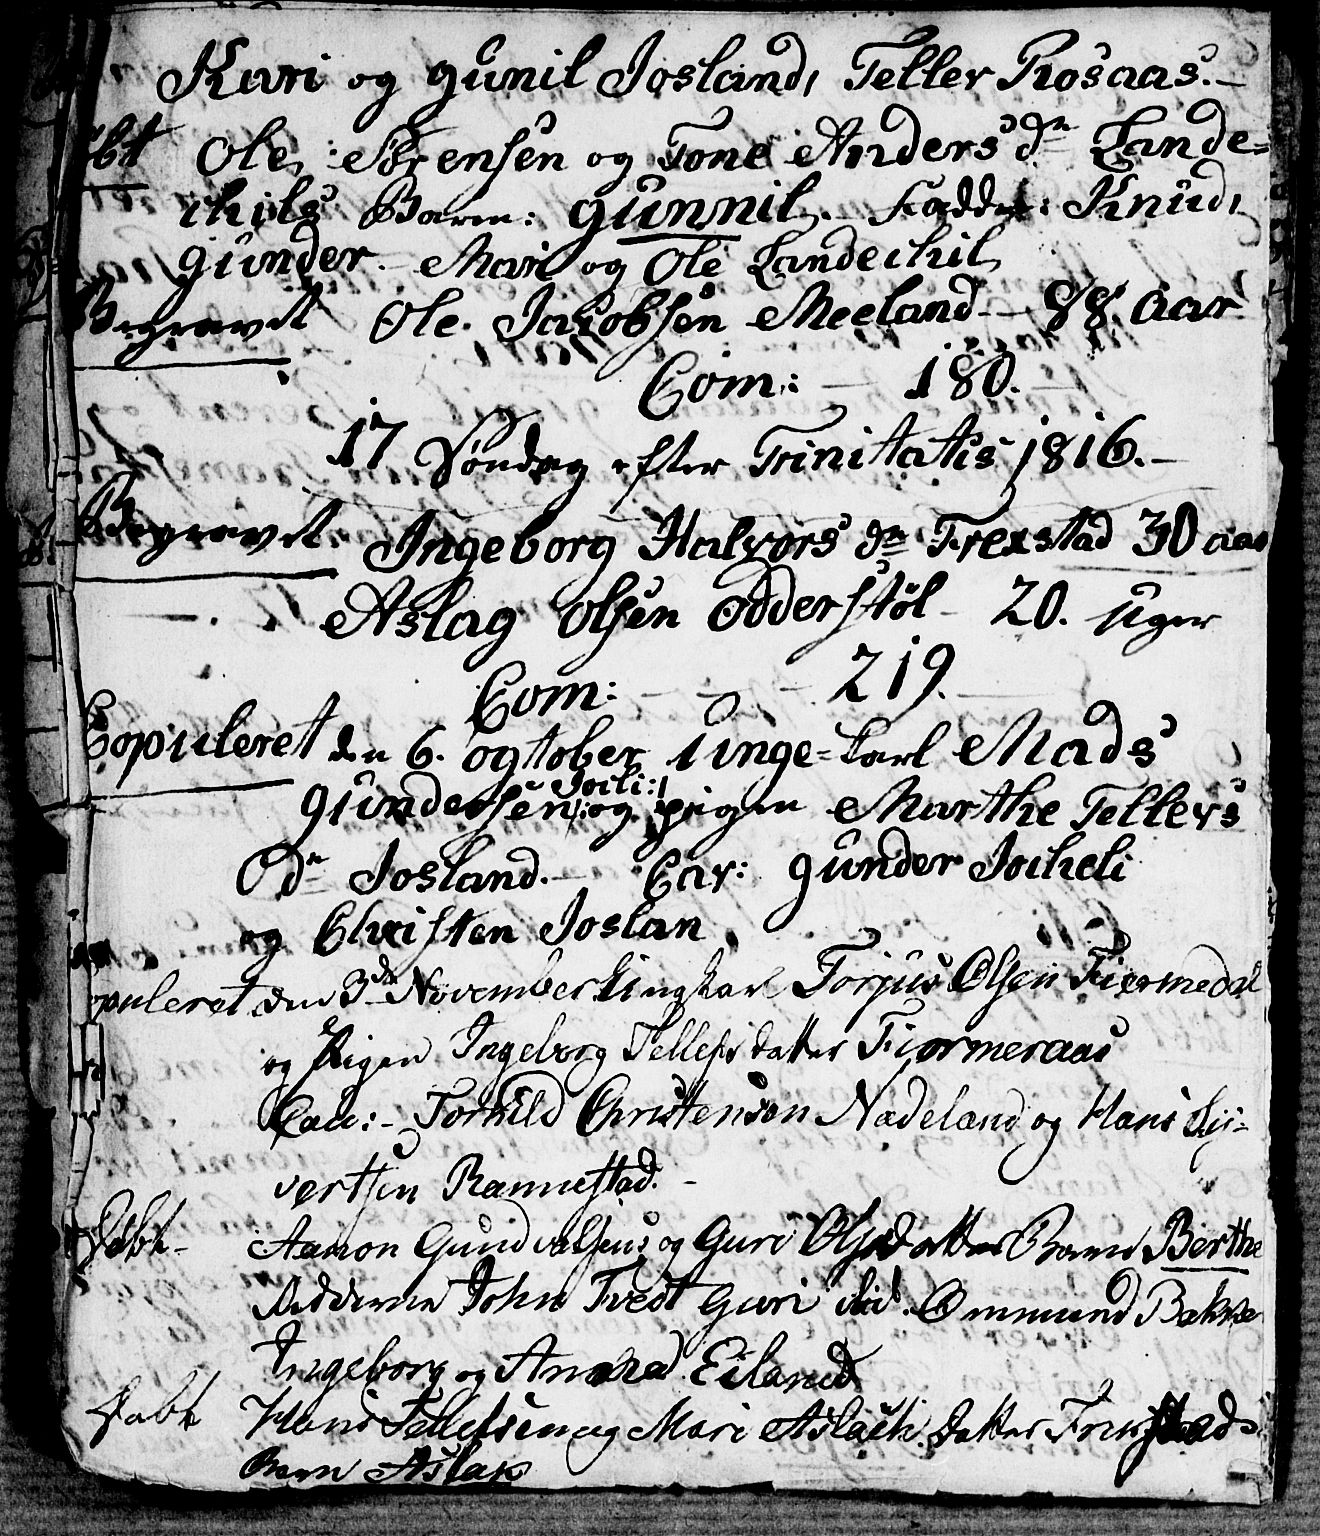 Kari og gunil Josland, Teller Rosaas. —
bt Ole Sørensen og Tone Anders dn Lande=
chils Barn: gunnil. Fadd: Knud,
gunder. Mari og Ole Landechil,
Begravet Ole Jacobsen Meeland — 88 Aar
Com: — 180.
17 Søndag efter Trinitatis 1816. —
Begravet Ingeborg Halvors dn Frexstad 30 aar
Aslag Olsen Odderstøl — 20. uger
Com: — — — 219.
Copuleret den 6. ogtober unge=karl Mads
Joili:|
gundersen |: og pigen Marthe Tellers
Dn Josland. — Cav: gunder Jocheli
og Christen Joslan
opuleret den 3de November Ungkarl Torjus Olsen Fiermedal
og Pigen Ingeborg Tellefsdatter Fiormeraas
Cau: — Torkild Christenson Nadeland og Hans Sy=
vertsen Rannestad. —
Døbt — Aanon Gundvalsens og Guri Olsdatter Barn Berthe
Fadderne John Tvedt Guri ibid. Ommund Bakke
Ingeborg og Eiland
Døbt Hans Tellefsen og Mari Aslachs Datter Frexstad
Barn Aslak